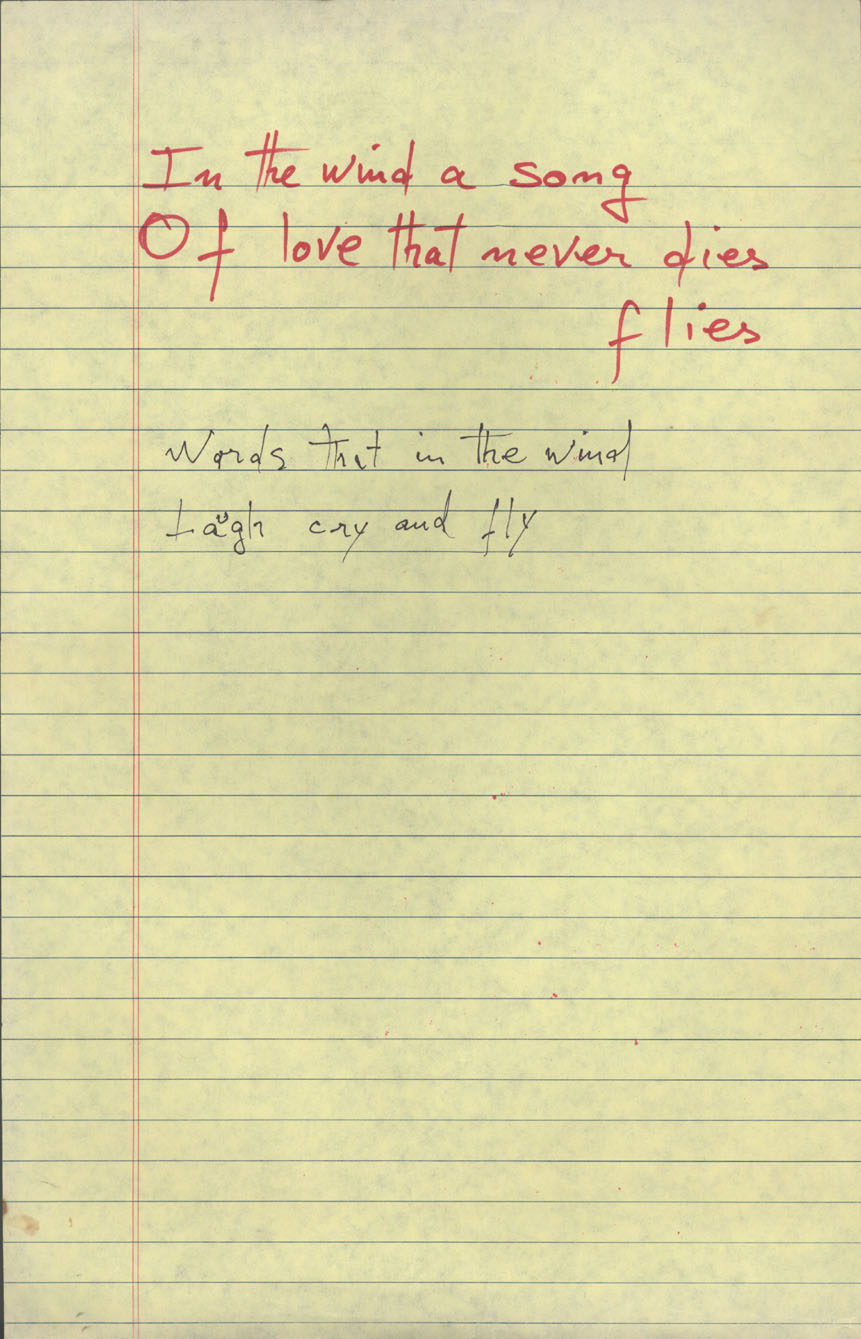 In the wind a song
Of love that never dies
flies
Words that in the wind
Laugh cry and fly